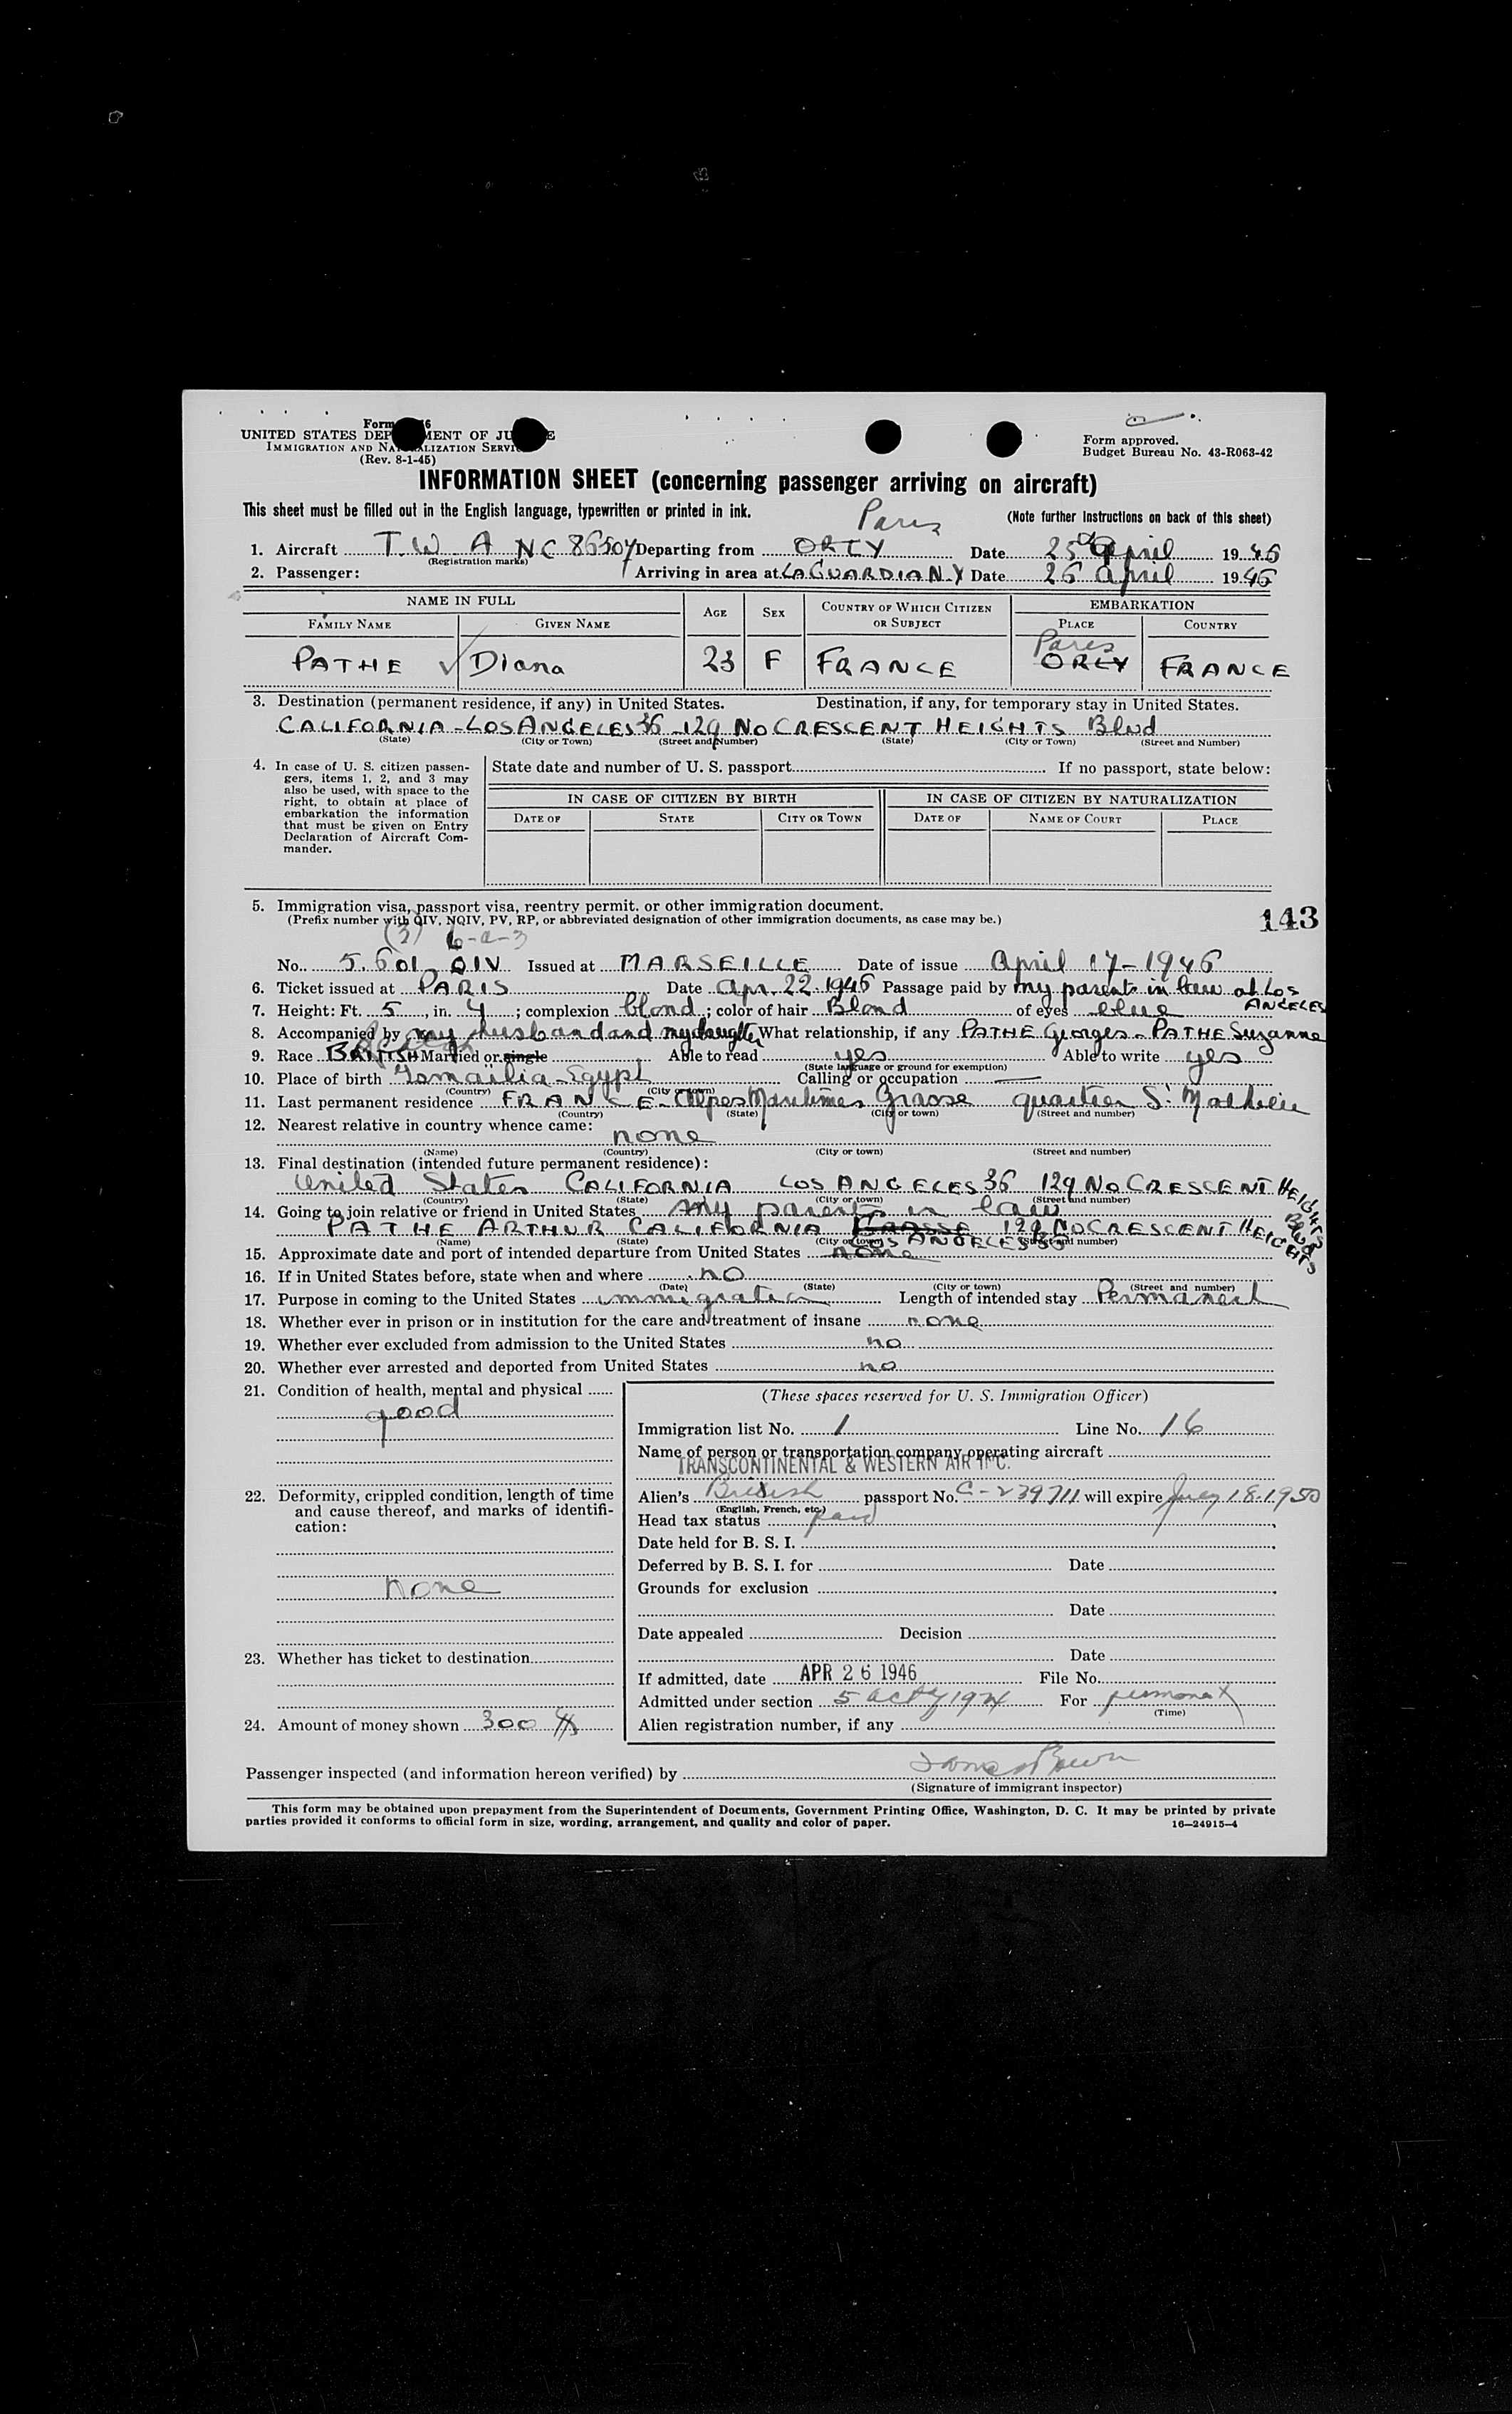 Form
UNITED STATES DEPARTMENT OF JUSTICE
IMMIGRATION AND NATURALIZATION SERVICE
(Rev. 8-1-45)
Form approved.
Budget Bureau No. 43-R063-42
INFORMATION SHEET (concerning passenger arriving on aircraft)
This sheet must be filled out in the English language, typewritten or printed in ink.
(Note further instructions on back of this sheet)
Paris
1. Aircraft T.W A NC 86507 Departing from ORLY Date 25 April 1946
(Registration marks)
2. Passenger: Arriving in area at LAGUARDIA N.Y Date 26 April 1946
NAME IN FULL AGE SEX COUNTRY OF WHICH CITIZEN OR SUBJECT EMBARKATION
FAMILY NAME GIVEN NAME PLACE COUNTRY
Paris
PATHE Diana 23 F FRANCE ORLY FRANCE
3. Destination (permanent residence, if any) in United States. Destination, if any, for temporary stay in United States.
CALIFORNIA - LOS ANGELES 36 - 129 NO CRESCENT HEIGHTS Blvd
(State) (City or Town) (Street and Number) (State) (City or Town) (Street and Number)
4. In case of U. S. citizen passen-
gers, items 1, 2, and 3 may
also be used, with space to the
right, to obtain at place of
embarkation the information
that must be given on Entry
Declaration of Aircraft Com-
mander.
State date and number of U. S. passport If no passport, state below:
IN CASE OF CITIZEN BY BIRTH IN CASE OF CITIZEN BY NATURALIZATION
DATE OF STATE CITY OR TOWN DATE OF NAME OF COURT PLACE
5. Immigration visa, passport visa, reentry permit. or other immigration document.
(Prefix number with QIV, NQIV, PV, RP, or abbreviated designation of other immigration documents, as case may be.)
143
(3) 6-a-3
No. 5.601 QIV Issued at MARSEILLE Date of issue April 17-1946
6. Ticket issued at PARIS Date Apr. 22. 1946 Passage paid by my parents in law at LOS ANGELES
7. Height: Ft. 5, in. 4; complexion blond; color of hair Blond of eyes blue
8. Accompanied by my husband and my daughter What relationship, if any PATHE Georges - PATHE Suzanne
9. Race BRITISH Married or single Able to read yes Able to write yes
(State language or ground for exemption)
10. Place of birth Ismaïlia - Egypt Calling or occupation —
(Country) (City or town)
11. Last permanent residence FRANCE - Alpes Maritimes Grasse quartier St Mathieu
(Country) (State) (City or town) (Street and number)
12. Nearest relative in country whence came:
none
(Name) (Country) (City or town) (Street and number)
13. Final destination (intended future permanent residence):
United States CALIFORNIA LOS ANGELES 36 129 NO CRESCENT HEIGHTS Blvd
(Country) (State) (City or town) (Street and number)
14. Going to join relative or friend in United States my parents in law
PATHE ARTHUR CALIFORNIA GRASSE 129 NO CRESCENT HEIGHTS
(Name) (State) (City or town) (Street and number)
LOS ANGELES 36
15. Approximate date and port of intended departure from United States none
16. If in United States before, state when and where no
(Date) (State) (City or town) (Street and number)
17. Purpose in coming to the United States immigration Length of intended stay Permanent
18. Whether ever in prison or in institution for the care and treatment of insane none
19. Whether ever excluded from admission to the United States no
20. Whether ever arrested and deported from United States no
21. Condition of health, mental and physical
good
22. Deformity, crippled condition, length of time
and cause thereof, and marks of identifi-
cation:
none
23. Whether has ticket to destination
24. Amount of money shown 300 $
(These spaces reserved for U. S. Immigration Officer)
Immigration list No. 1 Line No. 16
Name of person or transportation company operating aircraft
TRANSCONTINENTAL & WESTERN AIR INC.
Alien's British passport No. C-239711 will expire July 18.1950
(English, French, etc.)
Head tax status paid
Date held for B. S. I.
Deferred by B. S. I. for Date
Grounds for exclusion
Date
Date appealed Decision
Date
If admitted, date APR 26 1946 File No.
Admitted under section 5 act of 1924 For permanent
(Time)
Alien registration number, if any
Passenger inspected (and information hereon verified) by
(Signature of immigrant inspector)
This form may be obtained upon prepayment from the Superintendent of Documents, Government Printing Office, Washington, D. C. It may be printed by private
parties provided it conforms to official form in size, wording, arrangement, and quality and color of paper.
16—24915-4